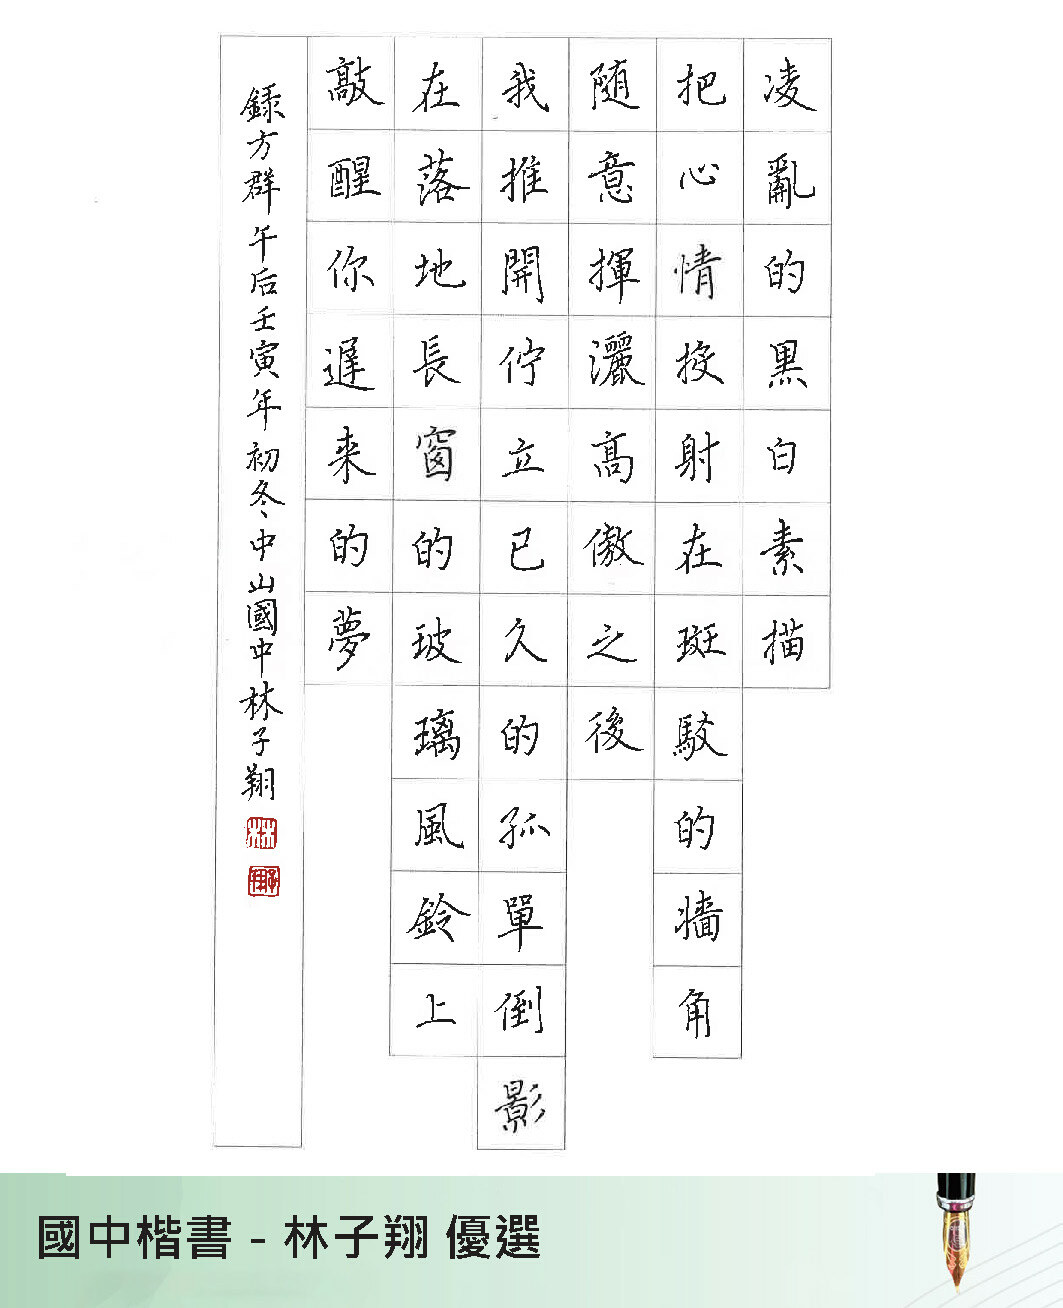 凌亂的黑白素描
把心情投射在斑駁的牆角
隨意揮灑高傲之後
我推開佇立已久的孤單倒影
在落地長窗的玻璃風鈴上
敲醒你遲來的夢
錄方群午后壬寅年初冬中山國中林子翔
國中楷書 - 林子翔 優選